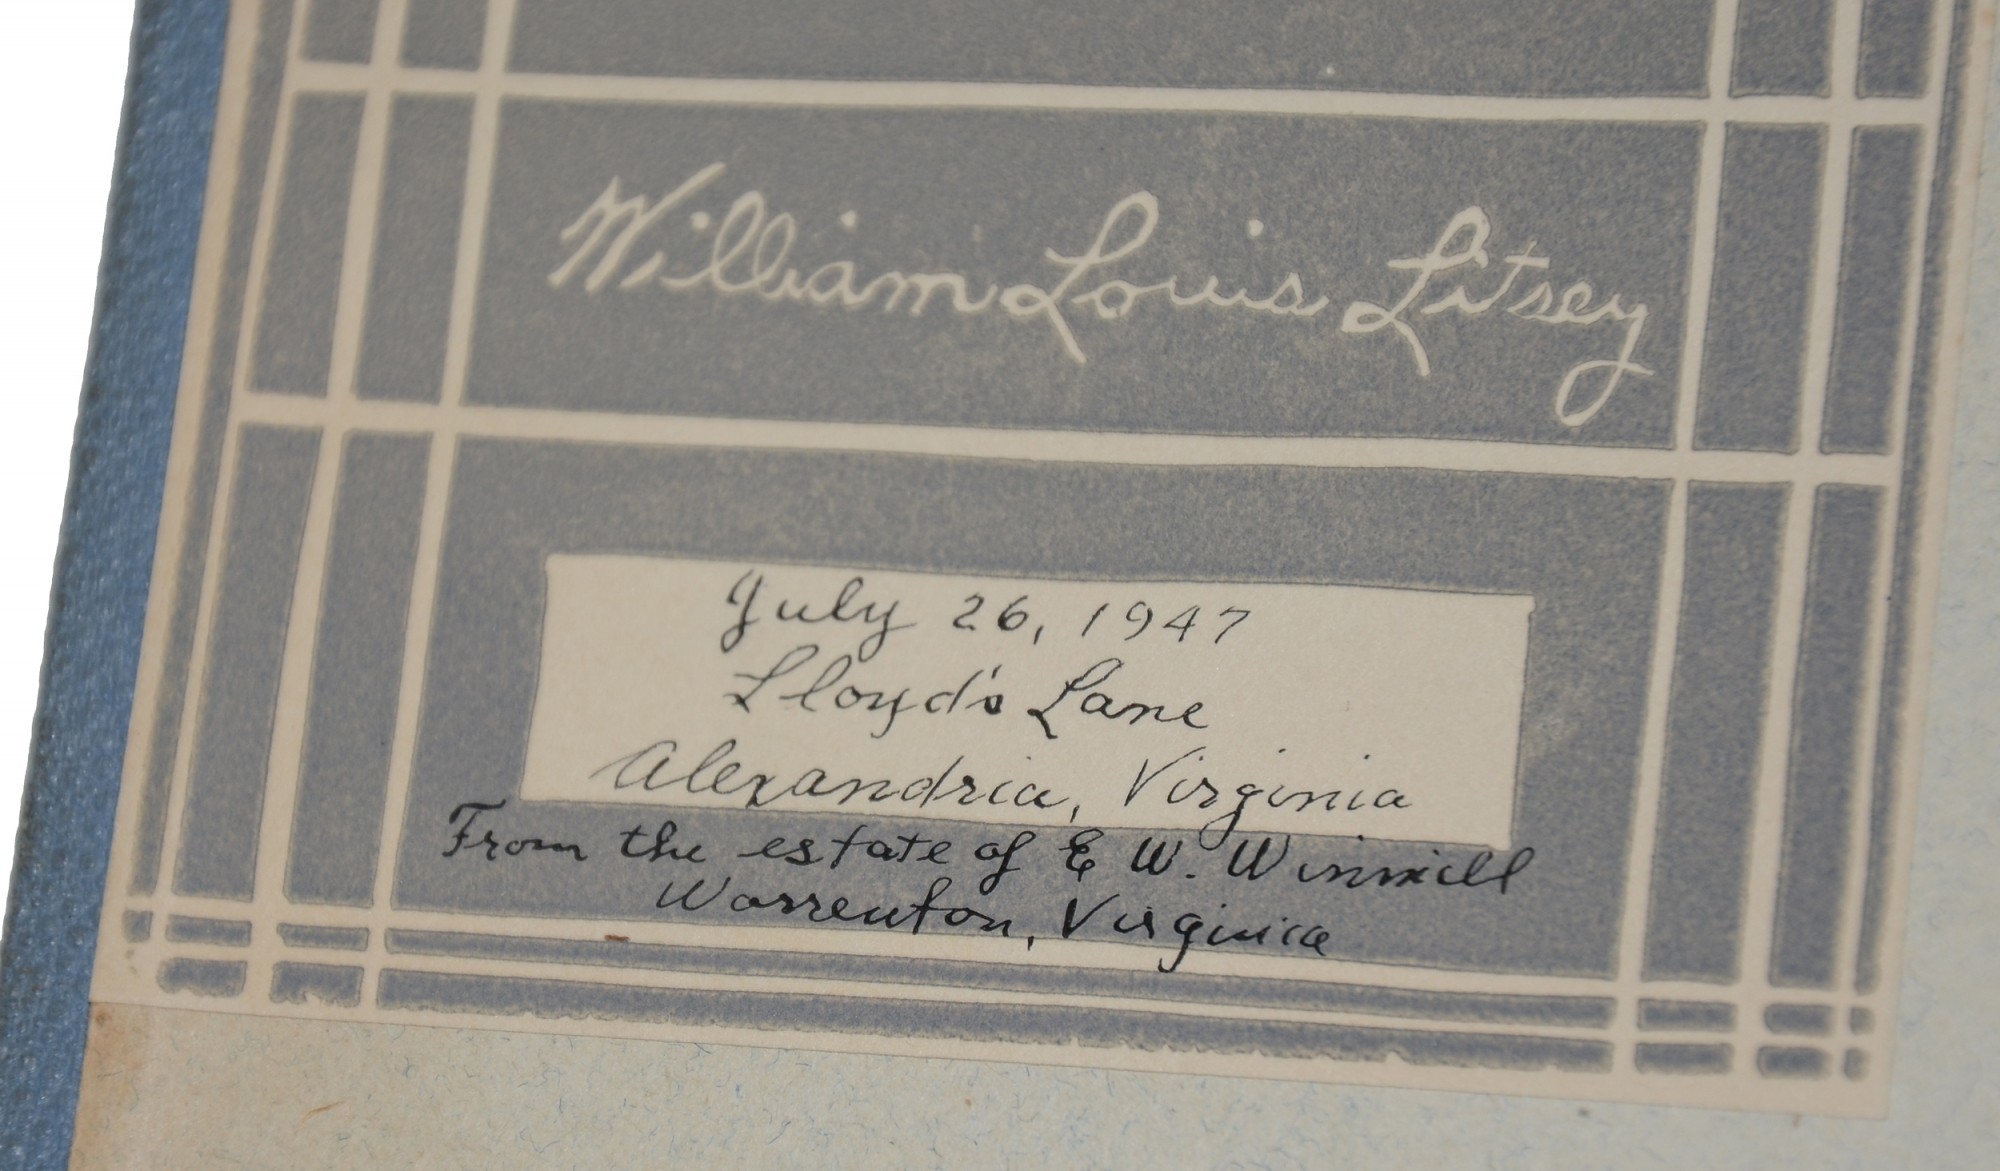 William Louis Litsey
July 26, 1947
Lloyd's Lane
Alexandria, Virginia
From the estate of E W. Winmill
Warrenton, Virginia